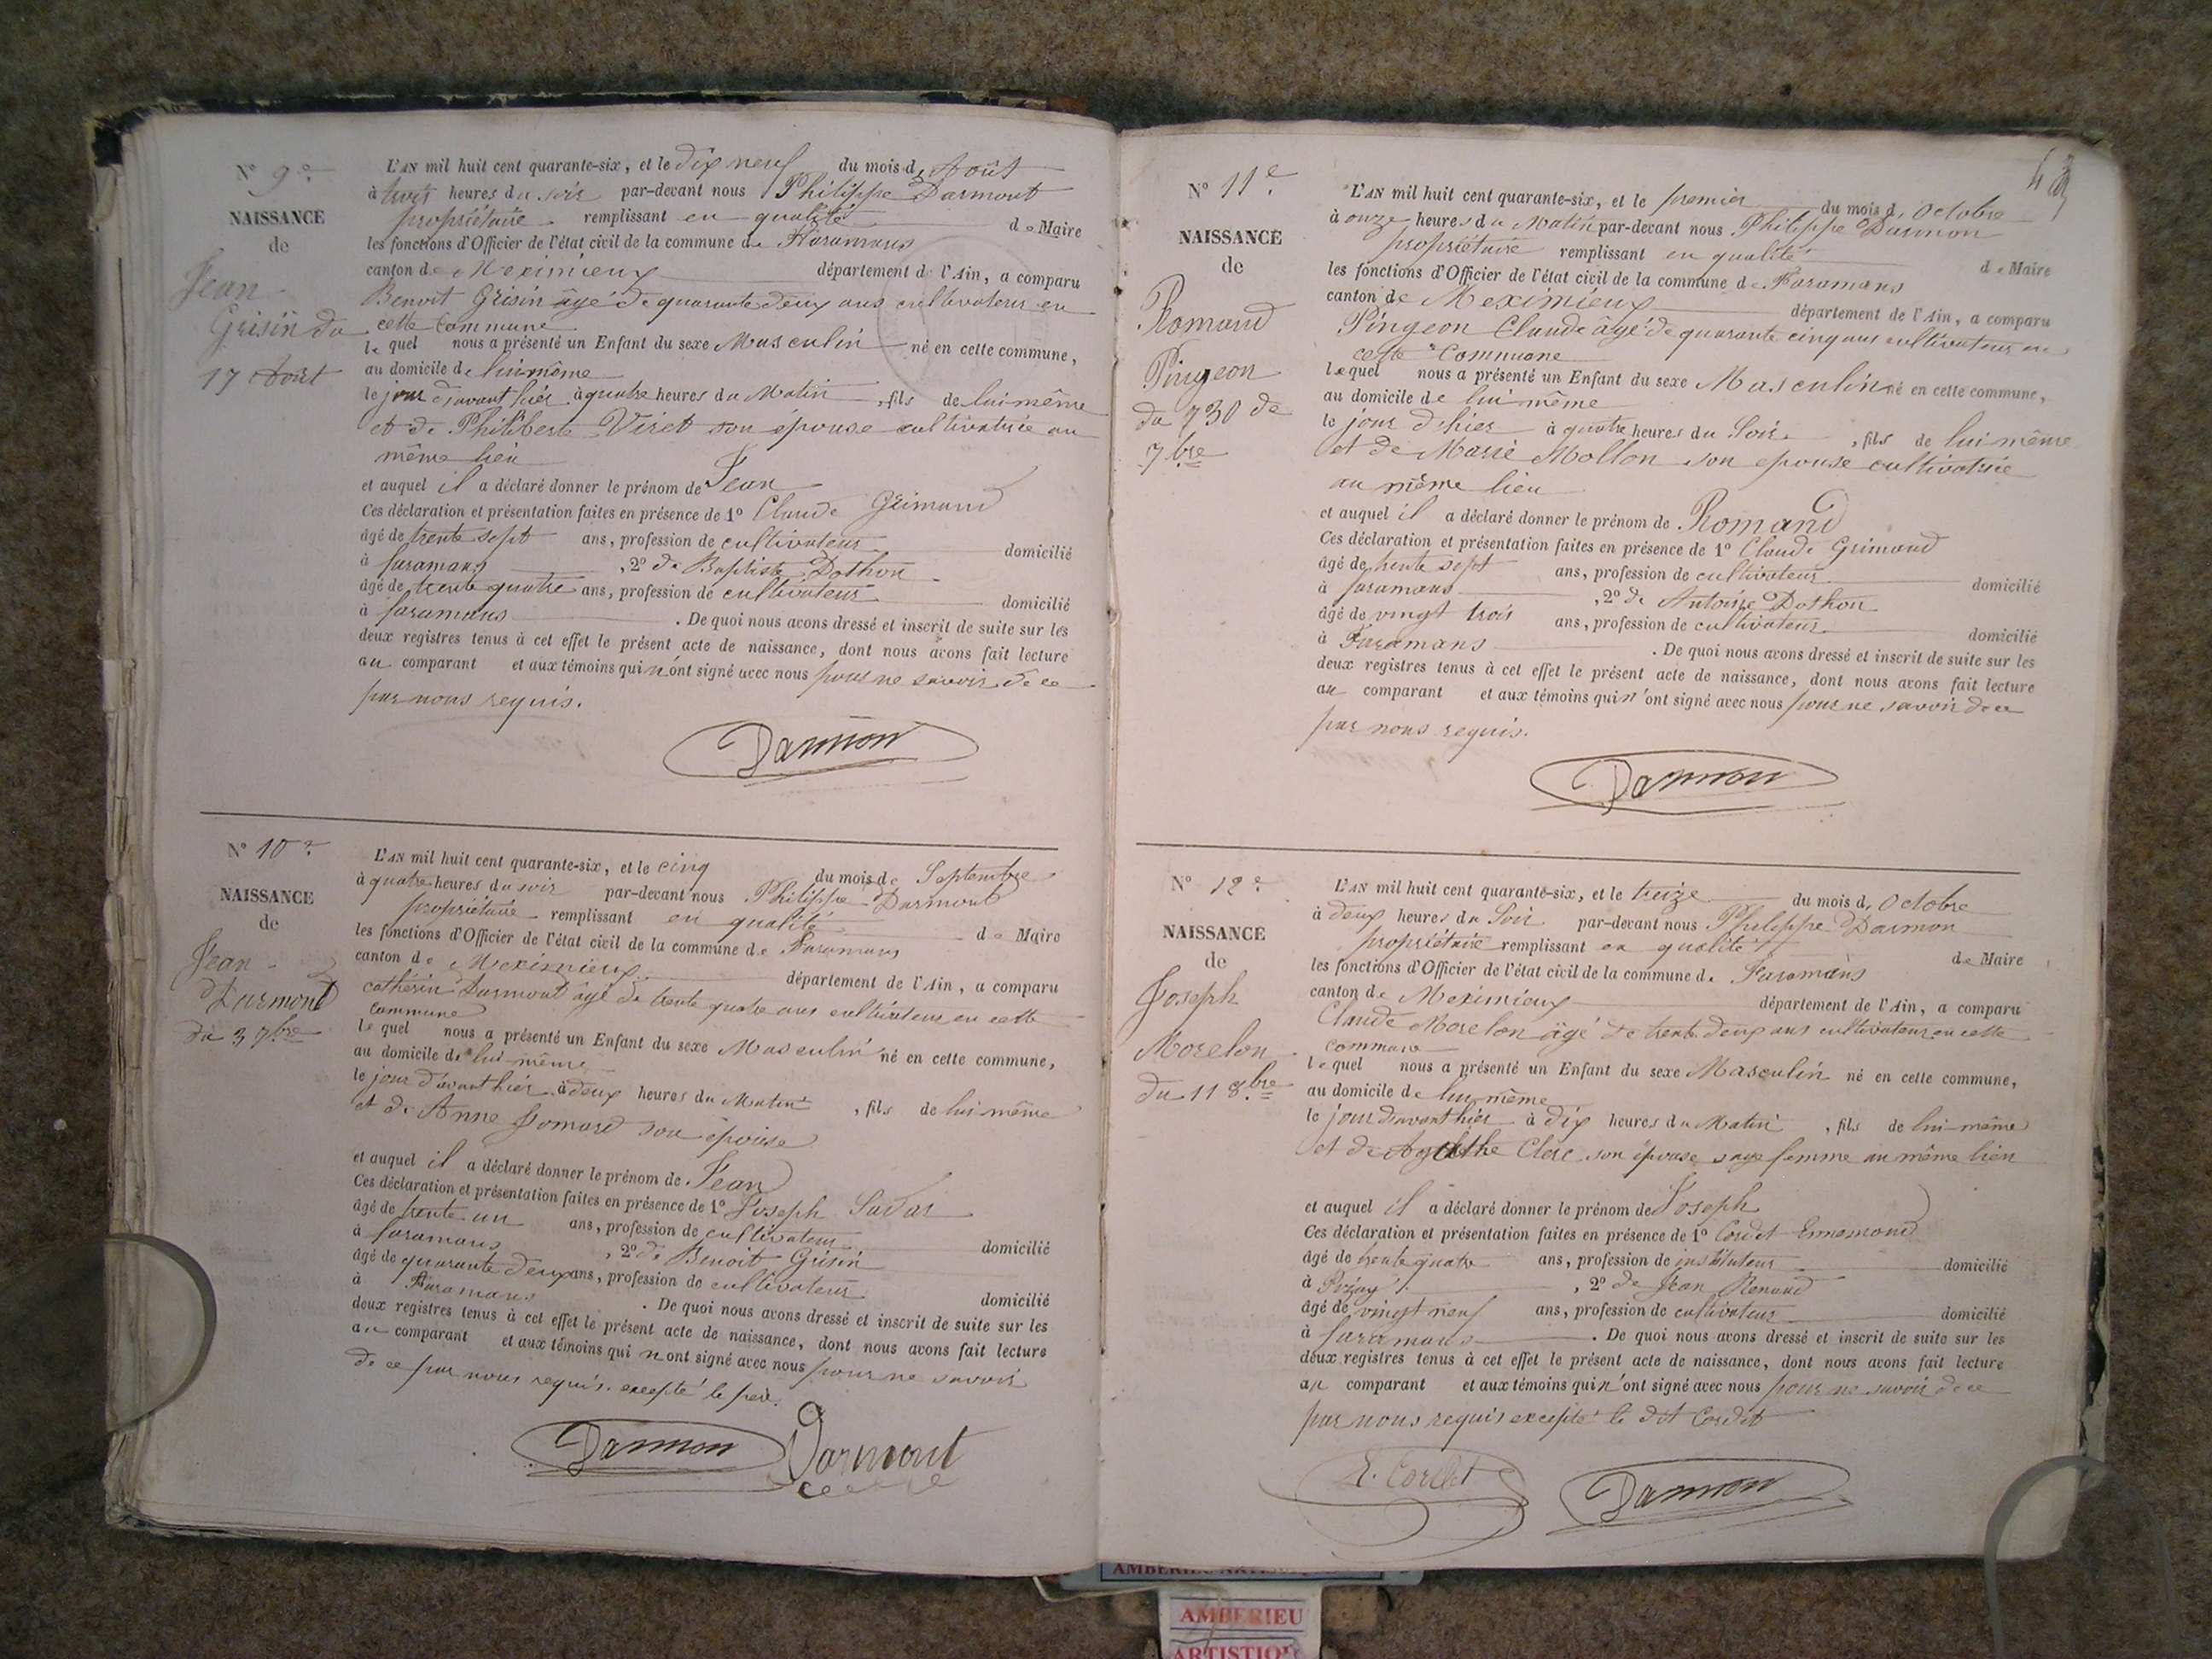 N° 9e
NAISSANCE
de
Jean
Grisin du
17 Août
L'AN mil huit cent quarante-six, et le dix neuf du mois d' Août
à trois heures du soir par-devant nous Philippe Darmont
propriétaire remplissant en qualité de Maire
les fonctions d'Officier de l'état civil de la commune de Faramans
canton de Meximieux département de l'Ain, a comparu
Benoit Grisin âgé de quarante deux ans cultivateur en
cette commune
lequel nous a présenté un Enfant du sexe Masculin né en cette commune,
au domicile de lui même
le jour d'avant hier à quatre heures du Matin, fils de lui même
et de Philiberte Viret son épouse cultivatrice au
même lieu
et auquel il a déclaré donner le prénom de Jean
Ces déclaration et présentation faites en présence de 1° Claude Grimand
âgé de trente sept ans, profession de cultivateur domicilié
à faramans, 2° de Baptiste Dothon
âgé de trente quatre ans, profession de cultivateur domicilié
à faramans. De quoi nous avons dressé et inscrit de suite sur les
deux registres tenus à cet effet le présent acte de naissance, dont nous avons fait lecture
au comparant et aux témoins qui n'ont signé avec nous pour ne savoir de ce
par nous requis.
Darmon
N° 10e
NAISSANCE
de
Jean
Darmont
du 3 7bre
L'AN mil huit cent quarante-six, et le cinq du mois de Septembre
à quatre heures du soir par-devant nous Philippe Darmont
propriétaire remplissant en qualité de Maire
les fonctions d'Officier de l'état civil de la commune de Faramans
canton de Meximieux département de l'Ain, a comparu
cathérin Darmont âgé de trente quatre ans cultivateur en cette
commune
lequel nous a présenté un Enfant du sexe Masculin né en cette commune,
au domicile de lui même
le jour d'avant hier à deux heures du Matin, fils de lui même
et de Anne Jomard son épouse
et auquel il a déclaré donner le prénom de Jean
Ces déclaration et présentation faites en présence de 1° Joseph
âgé de trente un ans, profession de cultivateur domicilié
à faramans, 2° de Benoit Grisin
âgé de quarante deux ans, profession de cultivateur domicilié
à Faramans. De quoi nous avons dressé et inscrit de suite sur les
deux registres tenus à cet effet le présent acte de naissance, dont nous avons fait lecture
au comparant et aux témoins qui n'ont signé avec nous pour ne savoir
de ce par nous requis. excepté le père.
Darmon Darmont
N° 11e
NAISSANCE
de
Romand
Pingeon
du 30 de
7bre
L'AN mil huit cent quarante-six, et le premier du mois d' Octobre
à onze heures du Matin par-devant nous Philippe Darmon
propriétaire remplissant en qualité de Maire
les fonctions d'Officier de l'état civil de la commune de Faramans
canton de Meximieux département de l'Ain, a comparu
Pingeon Claude âgé de quarante cinq ans cultivateur en
cette Commune
lequel nous a présenté un Enfant du sexe Masculin né en cette commune,
au domicile de lui même
le jour d'hier à quatre heures du Soir, fils de lui même
et de Marie Mollon son epouse cultivatrice
au même lieu
et auquel il a déclaré donner le prénom de Romand
Ces déclaration et présentation faites en présence de 1° Claude Grimand
âgé de trente sept ans, profession de cultivateur domicilié
à faramans, 2° de Antoine Dothon
âgé de vingt trois ans, profession de cultivateur domicilié
à Faramans. De quoi nous avons dressé et inscrit de suite sur les
deux registres tenus à cet effet le présent acte de naissance, dont nous avons fait lecture
au comparant et aux témoins qui n'ont signé avec nous pour ne savoir de ce
par nous requis.
Darmon
N° 12e
NAISSANCE
de
Joseph
Morelon
du 11 8bre
L'AN mil huit cent quarante-six, et le treize du mois d' Octobre
à deux heures du Soir par-devant nous Philippe Darmon
propriétaire remplissant en qualité de Maire
les fonctions d'Officier de l'état civil de la commune de Faramans
canton de Meximieux département de l'Ain, a comparu
Claude Morelon âgé de trente deux ans cultivateur en cette
commune
lequel nous a présenté un Enfant du sexe Masculin né en cette commune,
au domicile de lui même
le jour d'avant hier à dix heures du Matin, fils de lui même
et de Agathe Clerc son épouse sage femme au même lieu
et auquel il a déclaré donner le prénom de Joseph
Ces déclaration et présentation faites en présence de 1° Cordet Ennemond
âgé de trente quatre ans, profession de instituteur domicilié
à Pizay, 2° de Jean Renaud
âgé de vingt neuf ans, profession de cultivateur domicilié
à faramans. De quoi nous avons dressé et inscrit de suite sur les
deux registres tenus à cet effet le présent acte de naissance, dont nous avons fait lecture
au comparant et aux témoins qui n'ont signé avec nous pour ne savoir de ce
par nous requis excepté le dit Cordet
E. Cordet Darmon
AMBERIEU
ARTISTIQUE